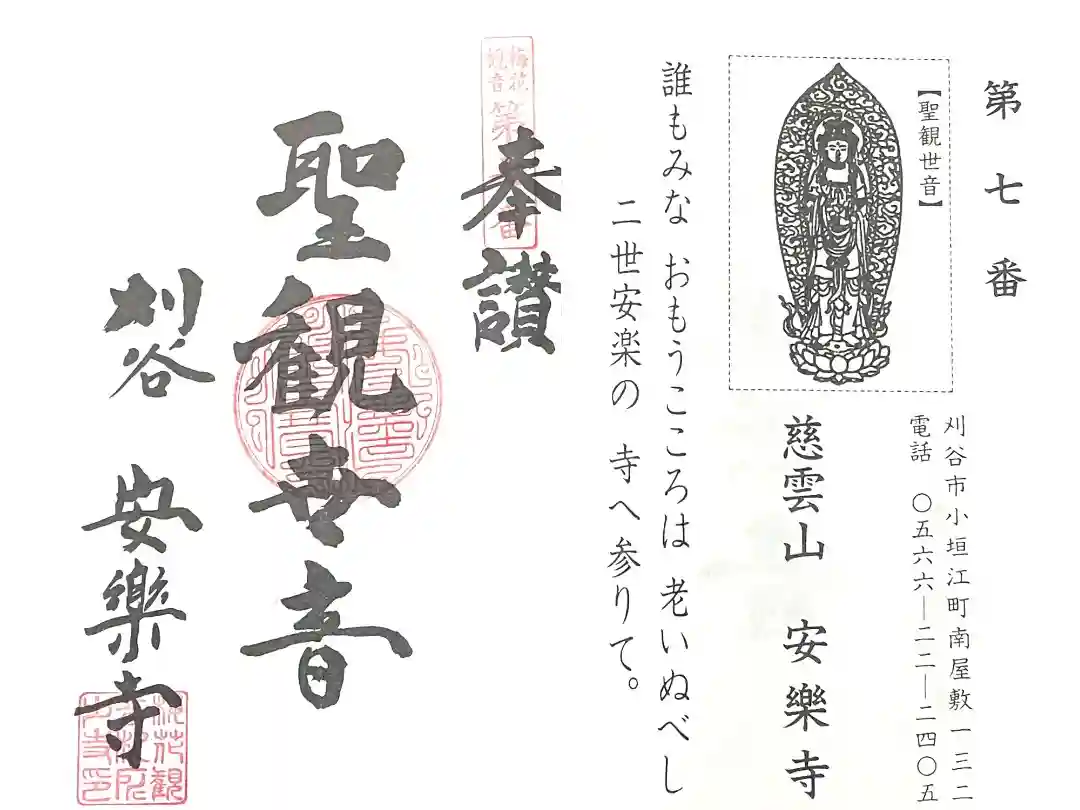 第七番
【聖観世音】
刈谷市小垣江町南屋敷一三二
電話 〇五六六―二二―二四〇五
慈雲山 安樂寺
誰もみな おもうこころは 老いぬべし
二世安楽の 寺へ参りて。
梅花
観音
奉讃
聖観世音
刈谷 安樂寺